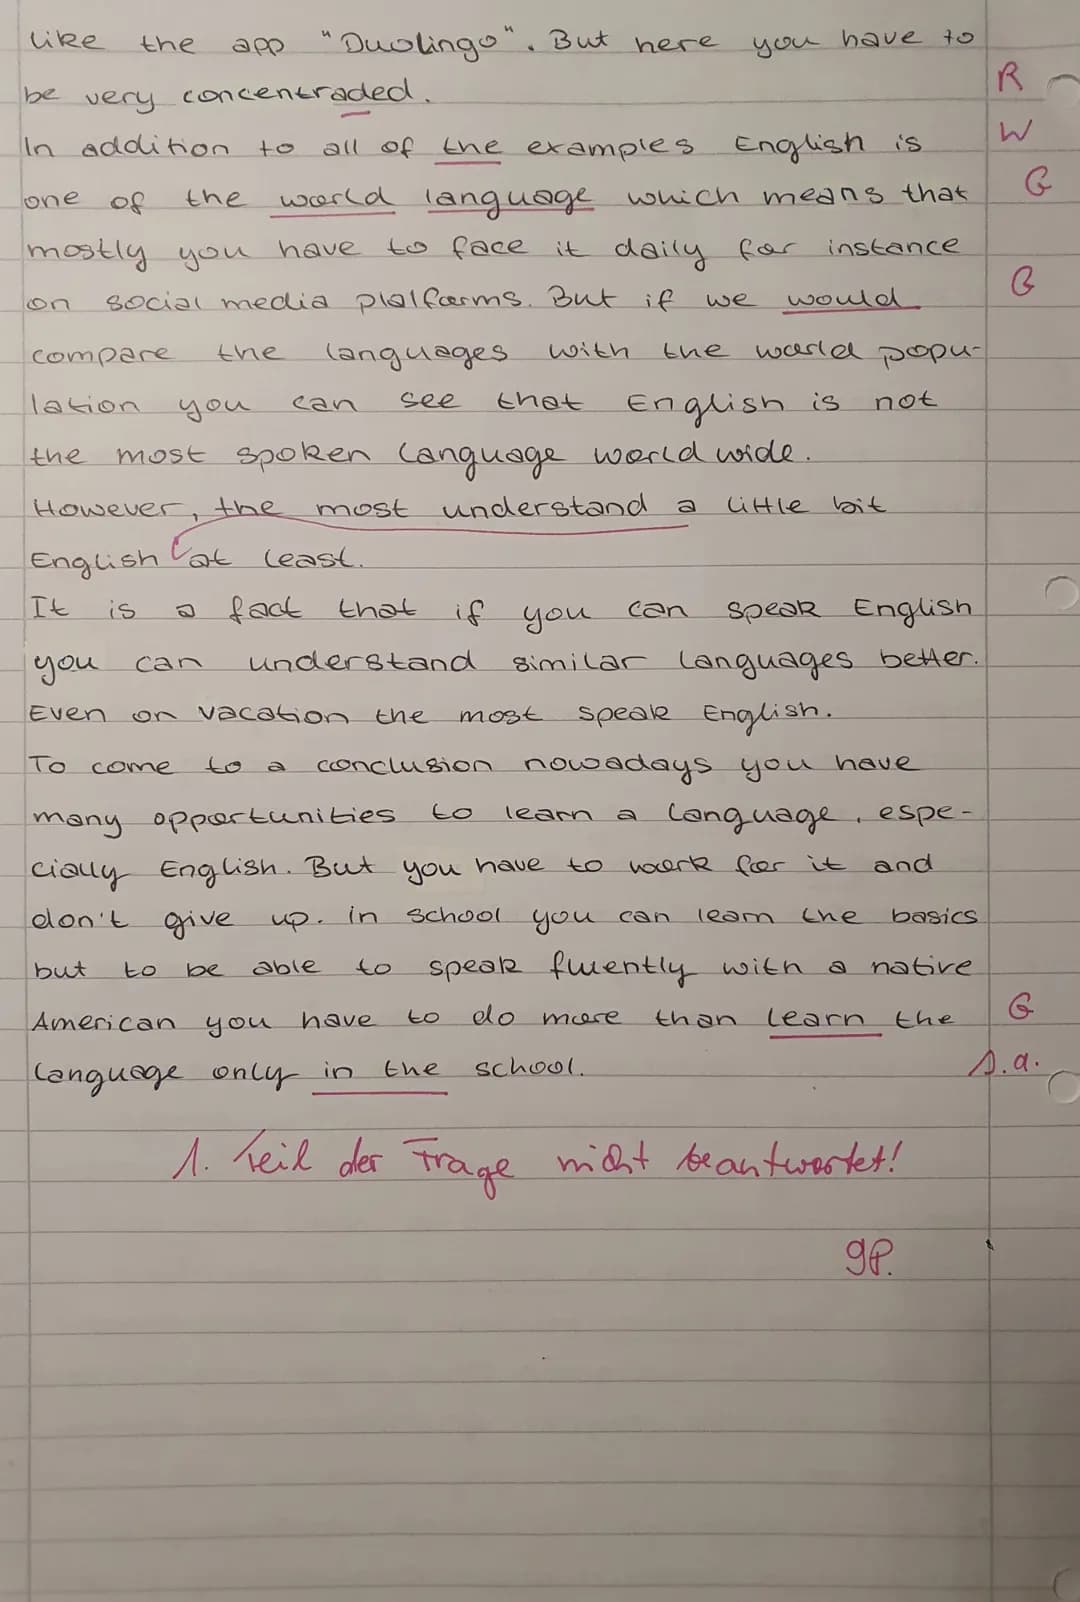 like the app "Duolingo". But here you have to
be very concentraded. R
In addition to all of the examples English is W
one of the world language which means that G
mostly you have to face it daily for instance
on social media plalforms. But if we would G
compare the languages with the world popu-
lation you can see that English is not
the most spoken language world wide.
However, the most understand a little bit
English at least.
It is a fact that if you can speak English
you can understand similar languages better.
Even on vacation the most speak English.
To come to a conclusion nowadays you have
many opportunities to learn a language, espe-
cially English. But you have to work for it and
don't give up. in school you can learn the basics
but to be able to speak fluently with a native
American you have to do more than learn the G
language only in the school. s.a.
1. Teil der Frage nicht beantwortet!
9P.